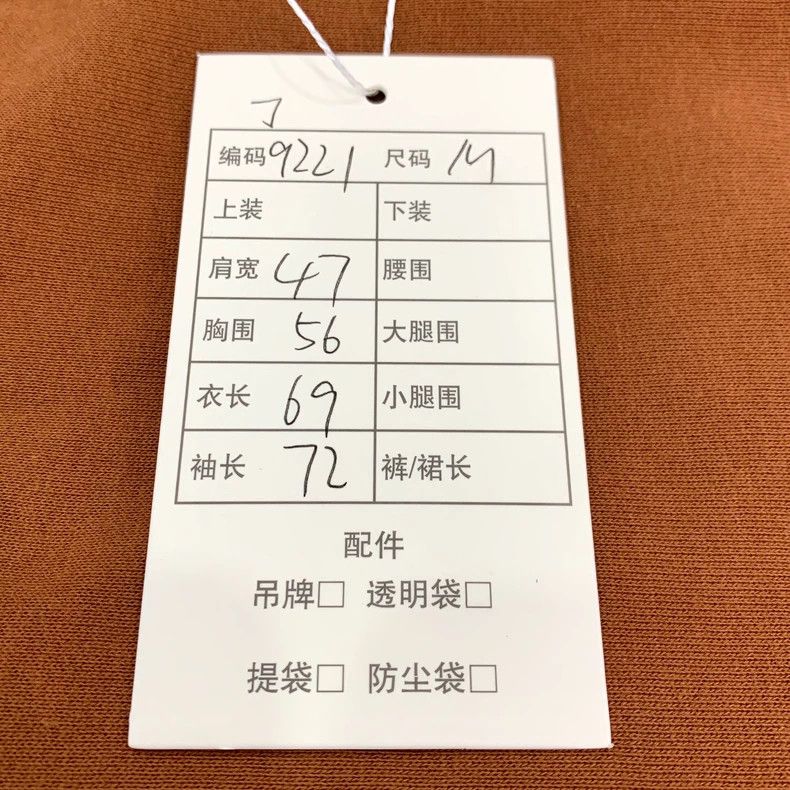 编码9221 尺码 M
上装 下装
肩宽 47 腰围
胸围 56 大腿围
衣长 69 小腿围
袖长 72 裤/裙长
配件
吊牌□ 透明袋□
提袋□ 防尘袋□